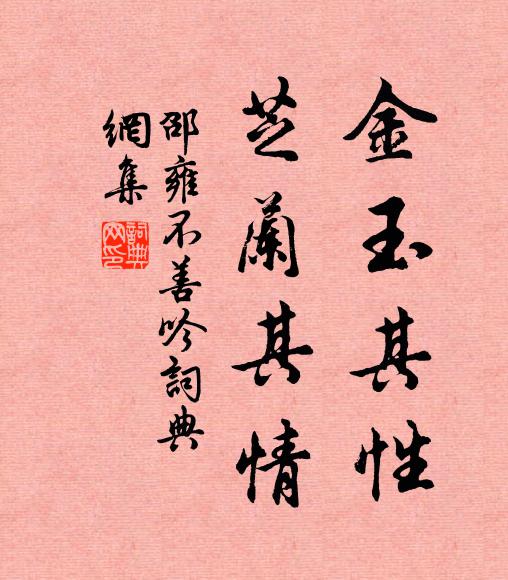 金玉其性
芝蘭其情
邵雍不善吟詞典
網集
詞典網印